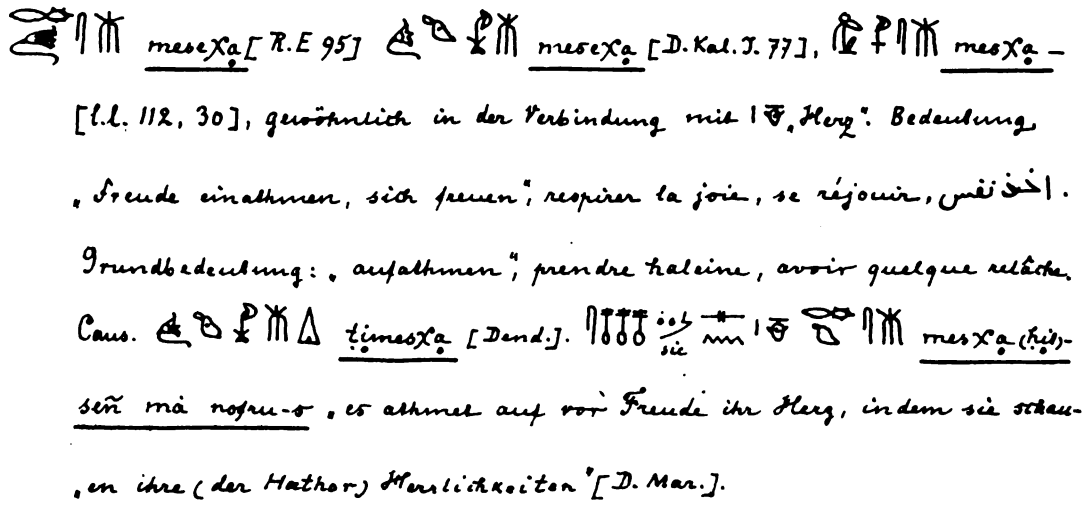 mesexạ [R.E 95] mesexạ [D. Kal. I. 77], mesxạ –
[l.l. 112, 30], gewöhnlich in der Verbindung mit „Herz“. Bedeutung,
„Freude einathmen, sich freuen“, respirer la joie, se réjouir, اخذ نفس.
Grundbedeutung: „aufathmen“, prendre haleine, avoir quelque relâche.
Caus. ṭịmesxạ [Dend.]. sic mesxạ (ḥịṭ)-
señ mȧ nofru-s „es athmet auf vor Freude ihr Herz, indem sie schau-
„en ihre (der Hathor) Herrlichkeiten“ [D. Mar.].